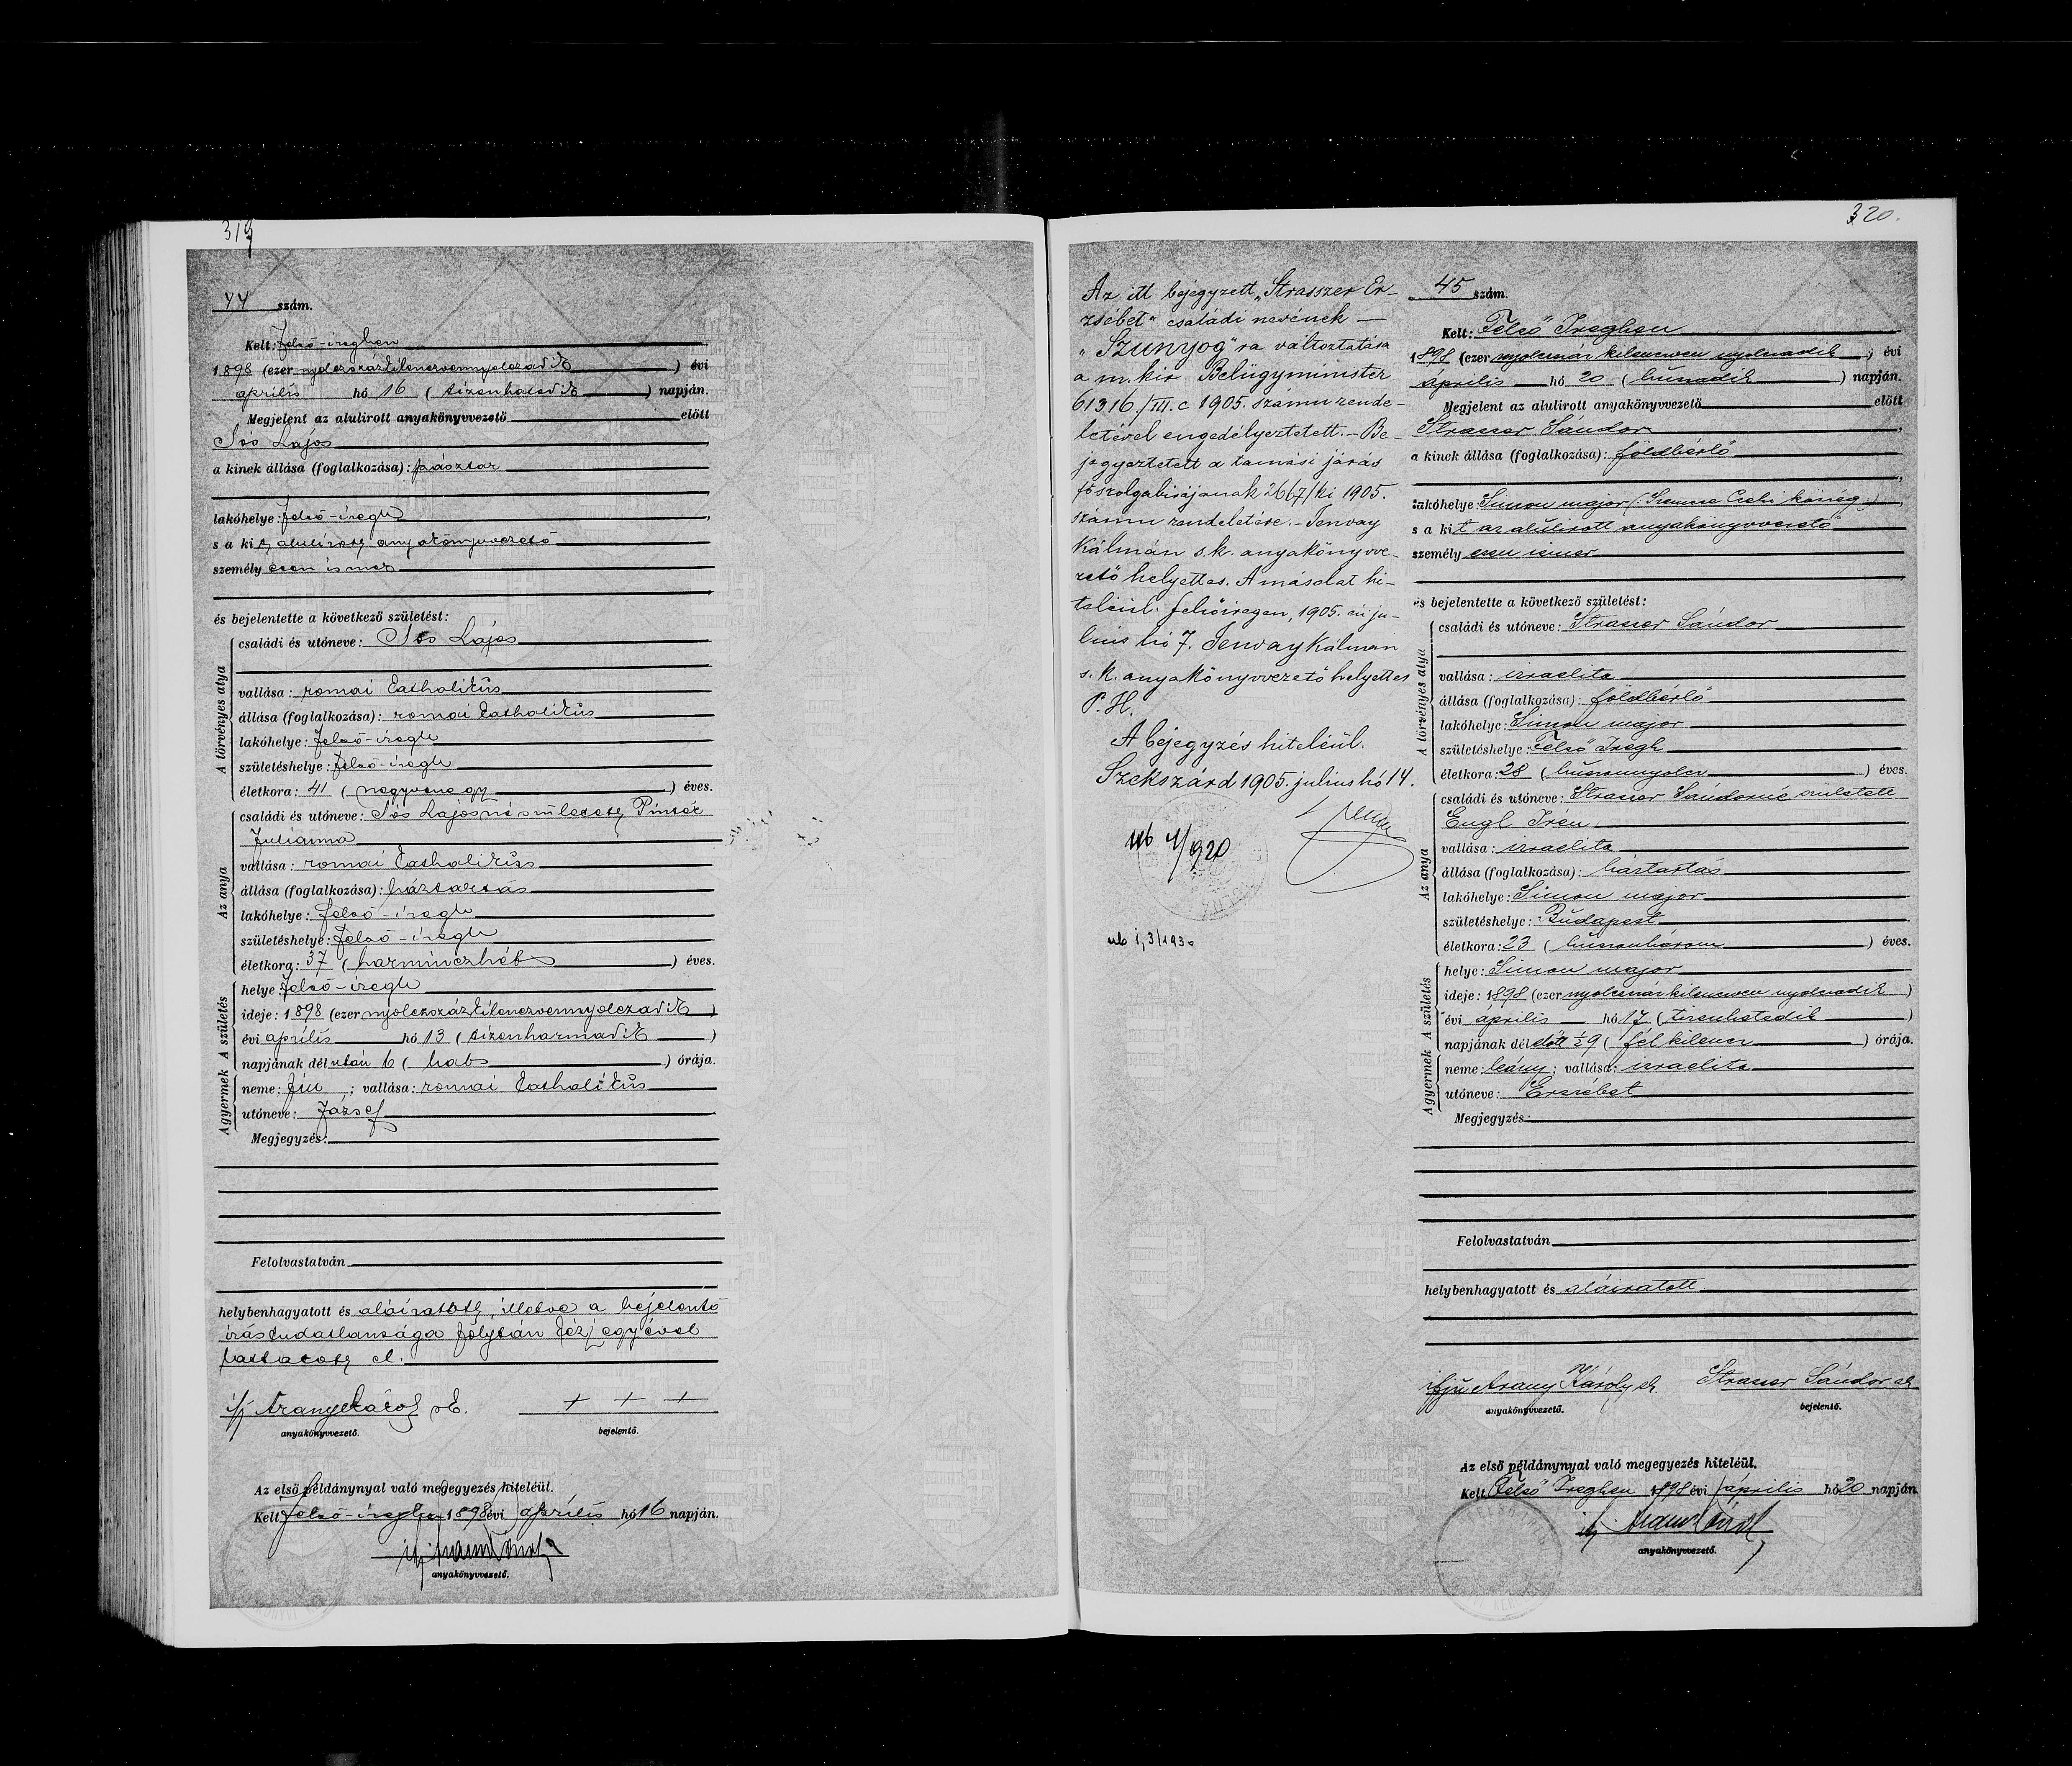 319
44 szám.
Kelt: Felső-iregben
1898 (ezer nyolczszázkilenczvennyolczadik) évi
április hó 16 (tizenhatodik) napján.
Megjelent az alulirott anyakönyvvezető előtt
Sós Lajos
a kinek állása (foglalkozása):
lakóhelye: felső-iregh,
s a kit alulirott anyakönyvvezető
személyesen ismer
és bejelentette a következő születést:
A törvényes atya
családi és utóneve: Sós Lajos
vallása: romai katholikus
állása (foglalkozása): romai katholikus
lakóhelye: felső-iregh
születéshelye: felső-iregh
életkora: 41 (negyvenegy) éves.
Az anya
családi és utóneve: Sós Lajosné született Pintér
Julianna
vallása: romai katholikus
állása (foglalkozása): háztartás
lakóhelye: felső-iregh
születéshelye: felső-iregh
életkora: 37 (harminczhét) éves.
A születés
helye: felső-iregh
ideje: 1898 (ezer nyolczszázkilenczvennyolczadik)
évi április hó 13 (tizenharmadik)
napjának délután 6 (hat) órája.
A gyermek
neme: fiú; vallása: romai katholikus
utóneve: József
Megjegyzés:
Felolvastatván
helybenhagyatott és aláiratott, illetve a bejelentő
irástudatlansága folytán kézjegyével
láttatott el.
ifj Arany Károly sk. + + +
anyakönyvvezető. bejelentő.
Az első példánynyal való megegyezés hiteléül.
Kelt felső-iregben 1898 évi április hó 16 napján.
anyakönyvvezető.
320.
Az itt bejegyzett „Strasszer Er-
zsébet" családi nevének —
„Szunyog" ra változtatása
a m. kir Belügyminister
61316/III. c 1905. számu rende-
letével engedélyeztetett. — Be-
jegyeztetett a tamási járás
főszolgabirájának 2667/ki 1905.
számu rendeletére. — Jenvay
Kálmán sk. anyakönyvve-
zető helyettes. A másolat hi-
teléül. felsőiregen, 1905. évi ju-
lius hó 7. Jenvay Kálmán
s. k. anyakönyvvezető helyettes
P. H.
A bejegyzés hiteléül.
Szekszárd 1905. julius hó 14.
45 szám.
Kelt: Felső Iregben
1898 (ezer nyolczszáz kilenczven nyolczadik) évi
április hó 20 (huszadik) napján.
Megjelent az alulirott anyakönyvvezető előtt
Strasser Sándor,
a kinek állása (foglalkozása): földbérlő,
lakóhelye: Simon major
s a kit az alulirott anyakönyvvezető
személyesen ismer
és bejelentette a következő születést:
A törvényes atya
családi és utóneve: Strasser Sándor
vallása: izraelita
állása (foglalkozása): földbérlő
lakóhelye: Simon major
születéshelye: Felső Iregh
életkora: 28 (huszonnyolcz) éves.
Az anya
családi és utóneve: Strasser Sándorné született
Engl Irén
vallása: izraelita
állása (foglalkozása): háztartás
lakóhelye: Simon major
születéshelye: Budapest
életkora: 23 (huszonhárom) éves.
A születés
helye: Simon major
ideje: 1898 (ezer nyolczszáz kilenczven nyolczadik)
évi április hó 17 (tizenhetedik)
napjának délelőtt ½9 (fél kilencz) órája.
A gyermek
neme: leány; vallása: izraelita
utóneve: Erzsébet
Megjegyzés:
Felolvastatván
helybenhagyatott és aláiratott
ifju Arany Károly sk Strasser Sándor sk
anyakönyvvezető. bejelentő.
Az első példánynyal való megegyezés hiteléül.
Kelt Felső Iregben 1898 évi április hó 20 napján.
anyakönyvvezető.